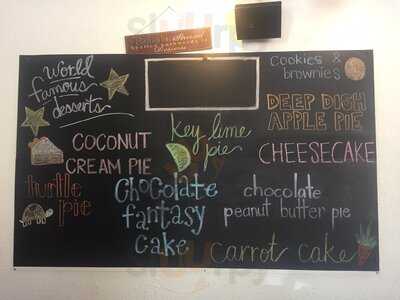 World
famous
desserts
cookies &
brownies
DEEP DISH
APPLE PIE
Key lime
pie
COCONUT
CREAM PIE
CHEESECAKE
turtle
pie
Chocolate
fantasy
cake
chocolate
peanut butter pie
carrot cake